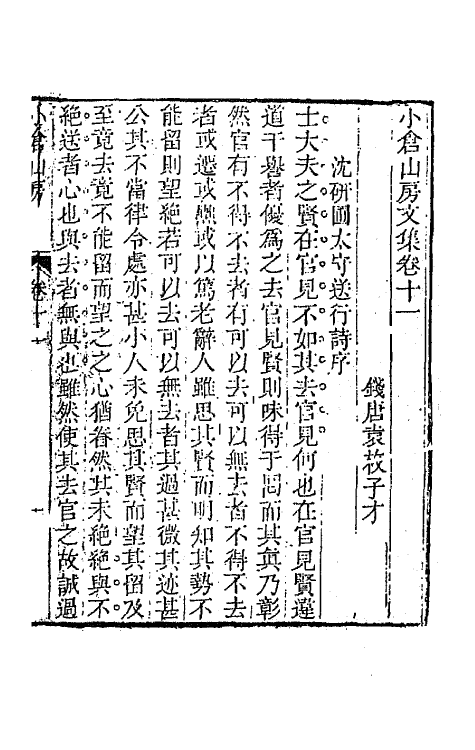 小倉山房文集卷十一
錢唐袁枚子才
沈硏圃太守送行詩序
士大夫之賢在官見不如其去官見何也在官見賢違
道干譽者優爲之去官見賢則味得于囘而其眞乃彰
然官有不得不去者有可以去可以無去者不得不去
者或遷或黜或以篤老辭人雖思其賢而明知其勢不
能留則望絶若可以去可以無去者其過甚微其迹甚
公其不當律令處亦甚小人未免思其賢而望其留及
至竟去竟不能留而望之之心猶眷然其未絶絶與不
絶送者心也與去者無與也雖然使其去官之故誠過
小倉山房
卷十一